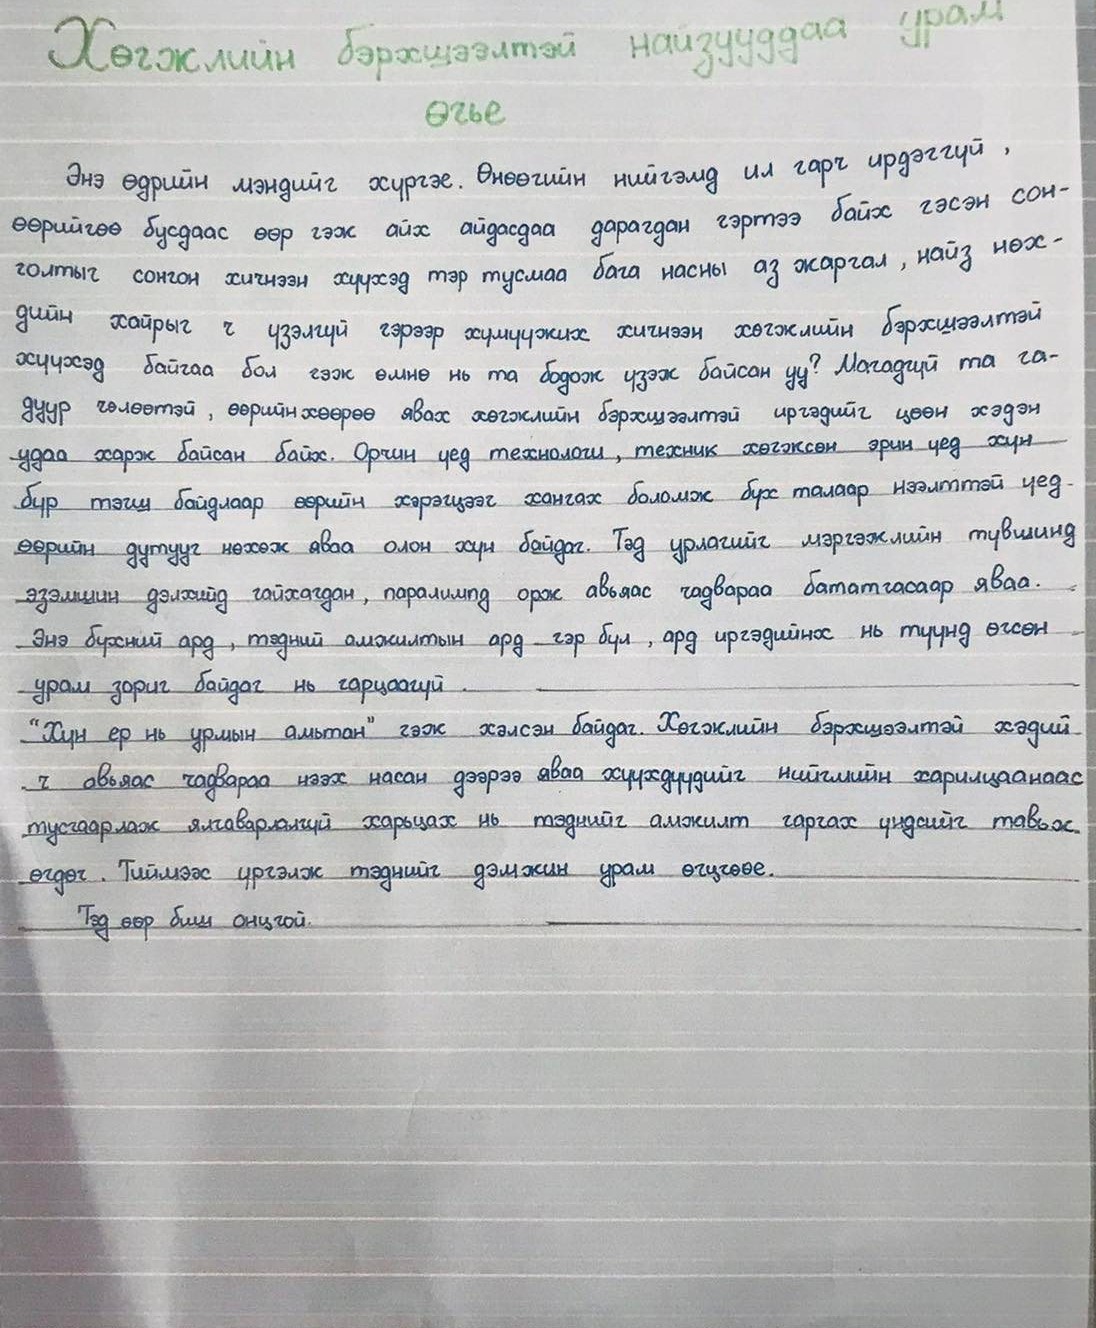 Хөгжлийн бэрхшээлтэй найзууддаа урам
өгье
Энэ өдрийн мэндийг хүргэе. Өнөөгийн нийгэмд ил гарч ирдэггүй,
өөрийгөө бусдаас өөр гэж айх айдасдаа дарагдан гэртээ байх гэсэн сон-
голтыг сонгон хичнээн хүүхэд тэр тусмаа бага насны аз жаргал, найз нөх-
дийн хайрыг ч үзэлгүй гэрээр хүмүүжих хичнээн хөгжлийн бэрхшээлтэй
хүүхэд байгаа бол гээж өмнө нь та бодож үзэж байсан уу? Магадгүй та га-
дуур чөлөөтэй, өөрийнхөөрөө явах хөгжлийн бэрхшээлтэй иргэдийг цөөн хэдэн
удаа харж байсан байх. Орчин үед технологи, техник хөгжсөн эрин үед хүн
бүр тэгш байдлаар өөрийн хэрэгцээг хангах боломж бүх талаар нээлттэй үед
өөрийн дутууг нөхөж яваа олон хүн байдаг. Тэд урлагийг мэргэжлийн түвшинд
эзэмшин дэлхийд гайхагдан, паралимпд орж авьяас чадвараа бататгасаар яваа.
Энэ бүхний ард, тэдний амжилтын ард гэр бүл, ард иргэдийнх нь түүнд өгсөн
урам зориг байдаг нь гарцаагүй.
"Хүн ер нь урмын амьтан" гээж хэлсэн байдаг. Хөгжлийн бэрхшээлтэй хэдий
ч авьяас чадвараа нээх насан дээрээ яваа хүүхдүүдийг нийгмийн харилцаанаас
тусгаарлаж ялгаварлалгүй харьцах нь тэднийг амжилт гаргах үндсийг тавьж
өгдөг. Тиймээс үргэлж тэднийг дэмжин урам өгцгөөе.
Тэд өөр биш онцгой.